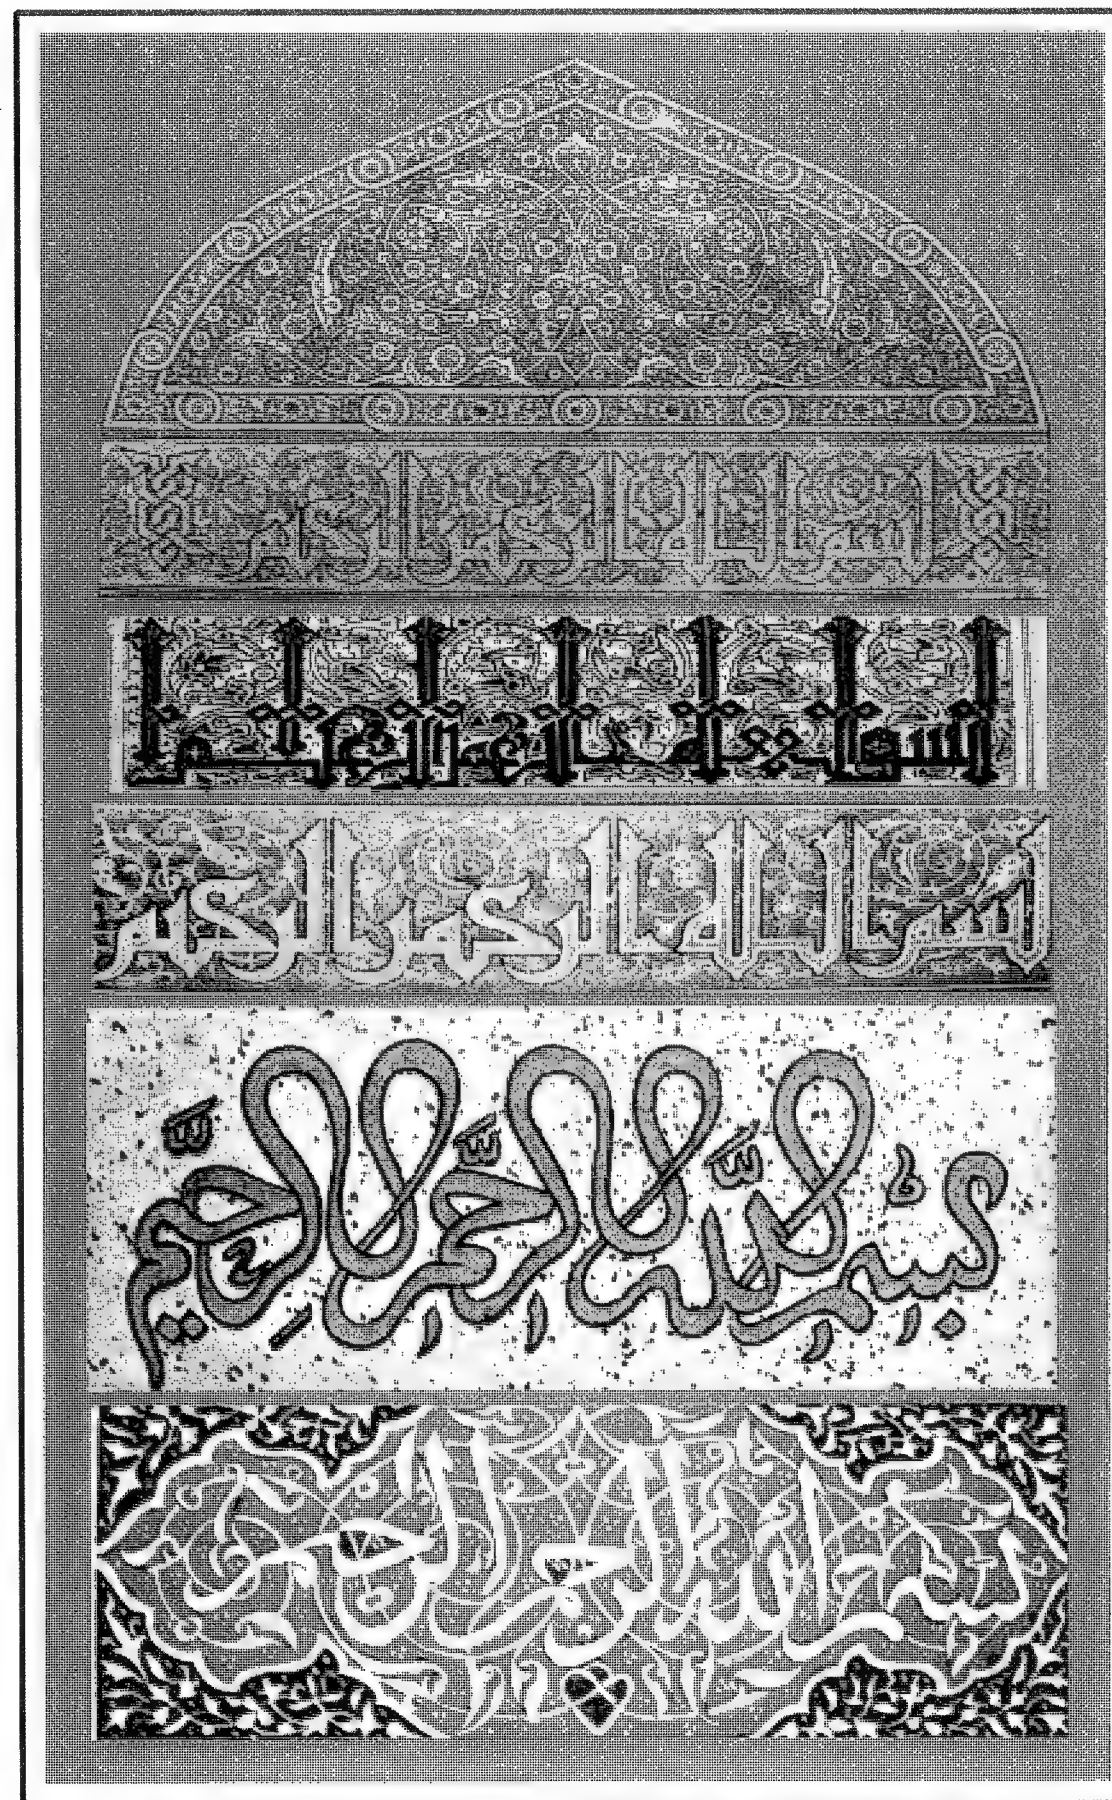 بسم الله الرحمن الرحيم
بسم الله الرحمن الرحيم
بِسْمِ اللَّهِ الرَّحْمنِ الرَّحِيمِ
بسم الله الرحمن الرحيم